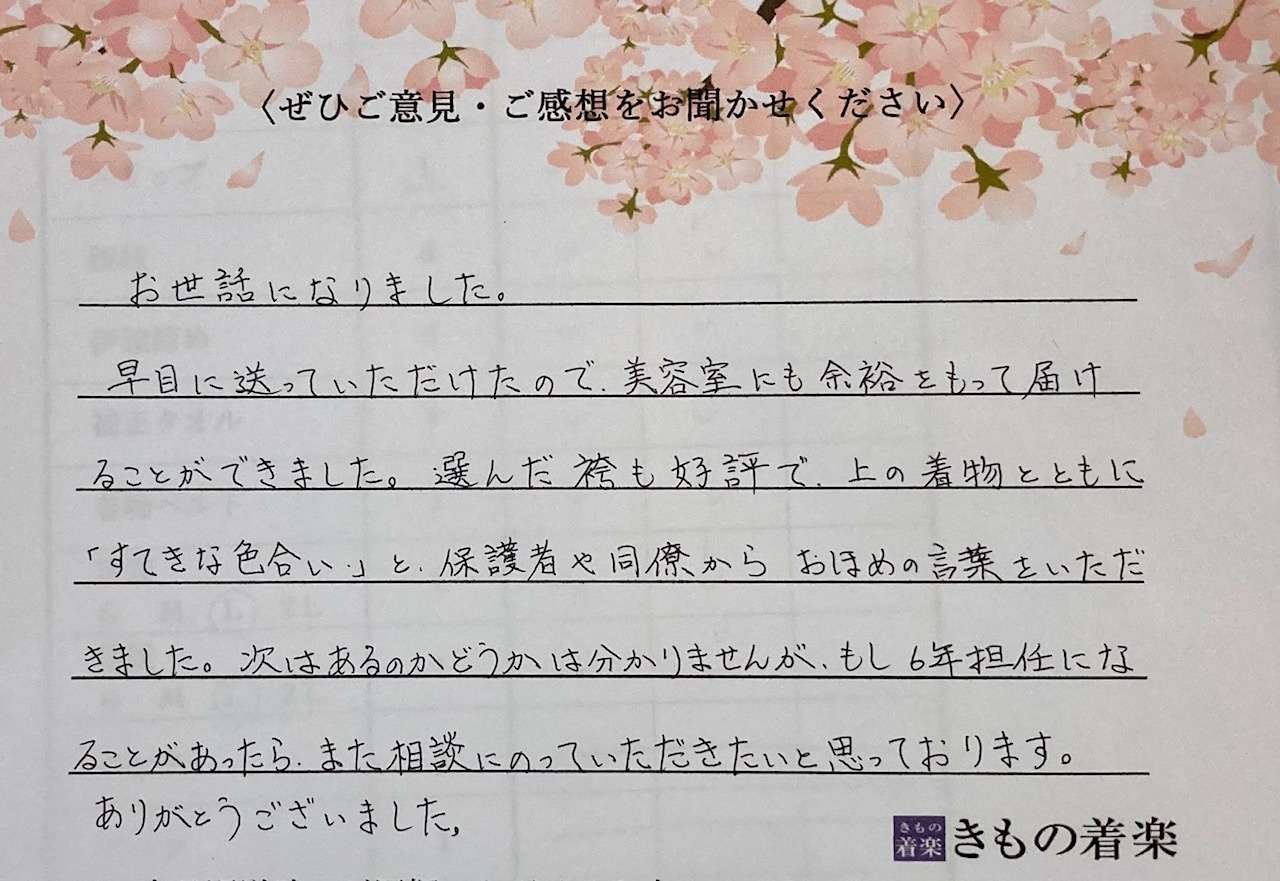 〈ぜひご意見・ご感想をお聞かせください〉
お世話になりました。
早目に送っていただけたので、美容室にも余裕をもって届け
ることができました。選んだ袴も好評で、上の着物とともに
「すてきな色合い」と、保護者や同僚からおほめの言葉をいただ
きました。次はあるのかどうかは分かりませんが、もし6年担任にな
ることがあったら、また相談にのっていただきたいと思っております。
ありがとうございました。
きもの
着楽
きもの着楽